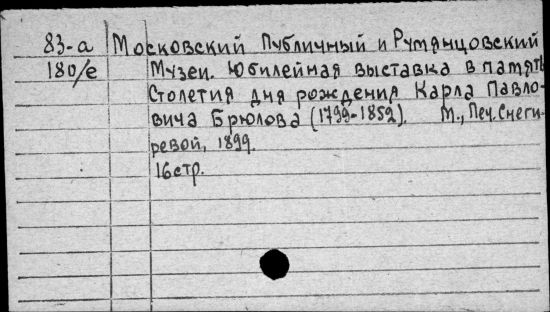 83-а Московский Публичный и Румянцовский
180/е Музеи. Юбилейная выставка в память
Столетия дня рождения Карла Павло-
вича Брюлова (1799-1852). М., Печ. Снеги-
ревой, 1899.
16 стр.